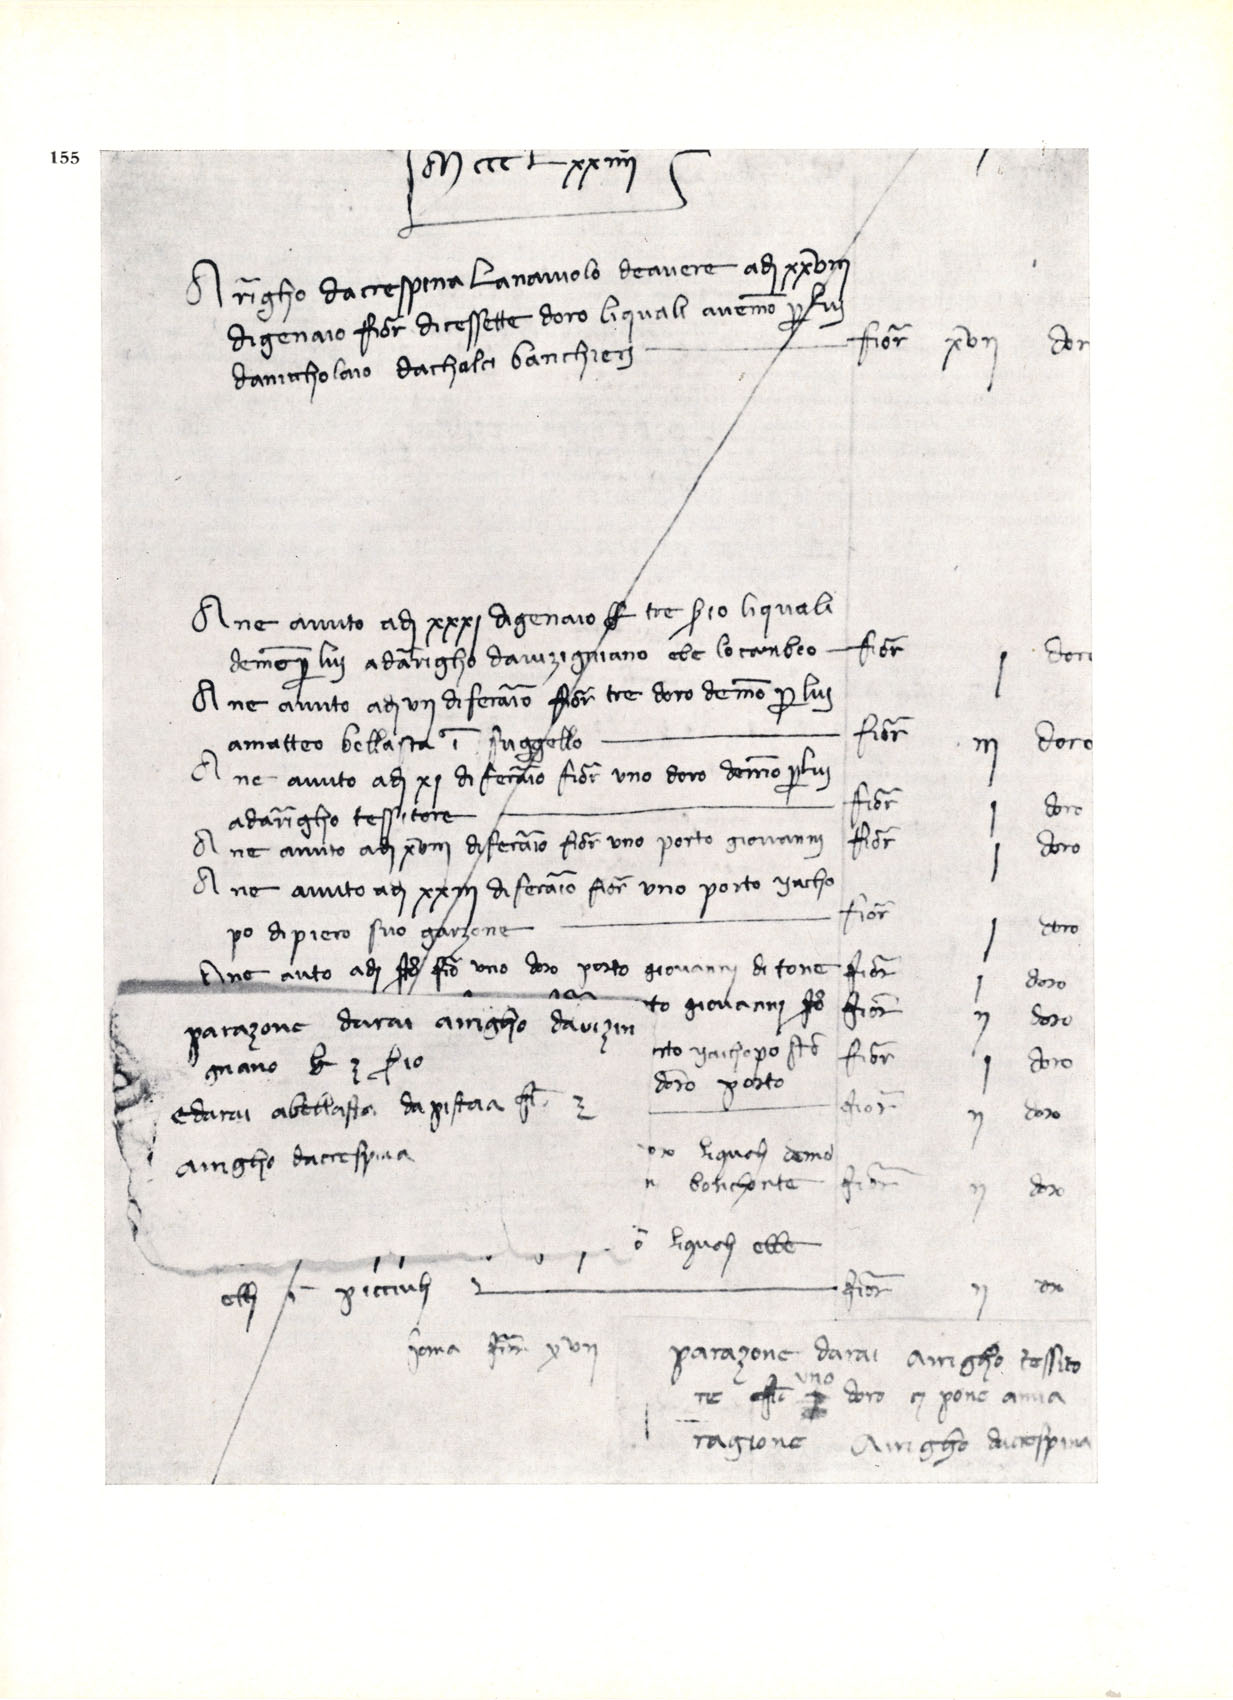 155
Mccc Lxxiiii
Arrigho dacrespina Lanaiuolo deavere adj xxviiij
digenaio fior dicessette doro liquali avemo p luj
danicholaio dachalci banchierj fior xvij dor
Ane avuto adj xxxj digenaio tre liquali
demo p luj adarrigho davizigniano ebe locambio fior j doro
Ane avuto adj vij difecraio fior tre doro demo p luj
amatteo bellasta i suggello fior iij doro
Ane avuto adj xj difecraio fior uno doro demo p luj
adarrigho tessitore fior j doro
Ane avuto adj xviiij difecraio fior uno porto giovannj fior j doro
Ane avuto adj xxiij difecraio fior uno porto yacho
po dipiero suo garzone fior j doro
Ane auto adj fior uno doro porto giovannj di tone fior j doro
to giovannj fior ij doro
rto yachopo fior j doro
doro porto
fior ij doro
liqualj demo
bonichonte fior ij doro
liqualj ebbe
ellj i picciulj fior ij
soma fior xvij
parazone darai arrigho davizin
gniano
edarai abellasta dapistoia
arrigho dacrespina
parazone darai arrigho tessito
re uno doro pone amia
ragione Arrigho dacrespina